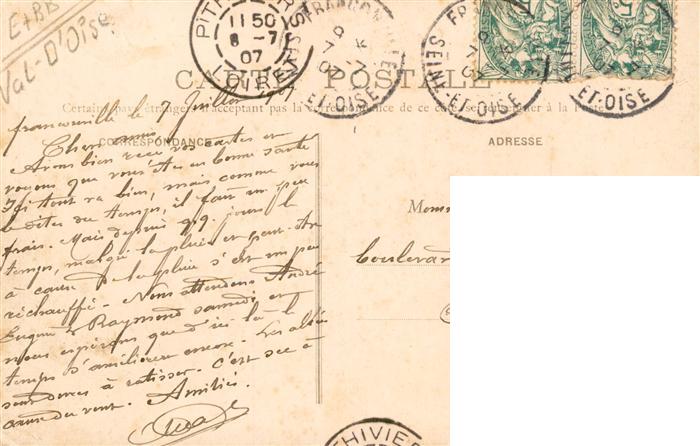 E+BB
Val-D'Oise
PITHIVIERS
11 50
8 -7
07
LOIRET
FRANCONVILLE
7 -7
07
SEINE-ET-OISE
FRANCONVILLE
7 -7
07
SEINE-ET-OISE
ET-OISE
CARTE POSTALE
Certains pays étrangers n'acceptant pas la correspondance de ce côté se renseigner à la Poste
CORRESPONDANCE
ADRESSE
franconville le 7 Juillet 1907
Chers amis
Avons bien reçu vos cartes et
voyons que vous êtes en bonne santé
Ici tout va bien, mais comme vous
le dites du temps, il fait un peu
frais. Mais depuis qq. jours le
temps, malgré la pluie et peut-être
à cause de la pluie s'est un peu
réchauffé. Nous attendons André
Eugène & Raymond samedi et
nous espérons que d'ici là le
temps s'améliorera encore. Les allées
sont dures à ratisser. C'est sec à
cause du vent. Amitiés.
Mons
boulevar
THIVIE